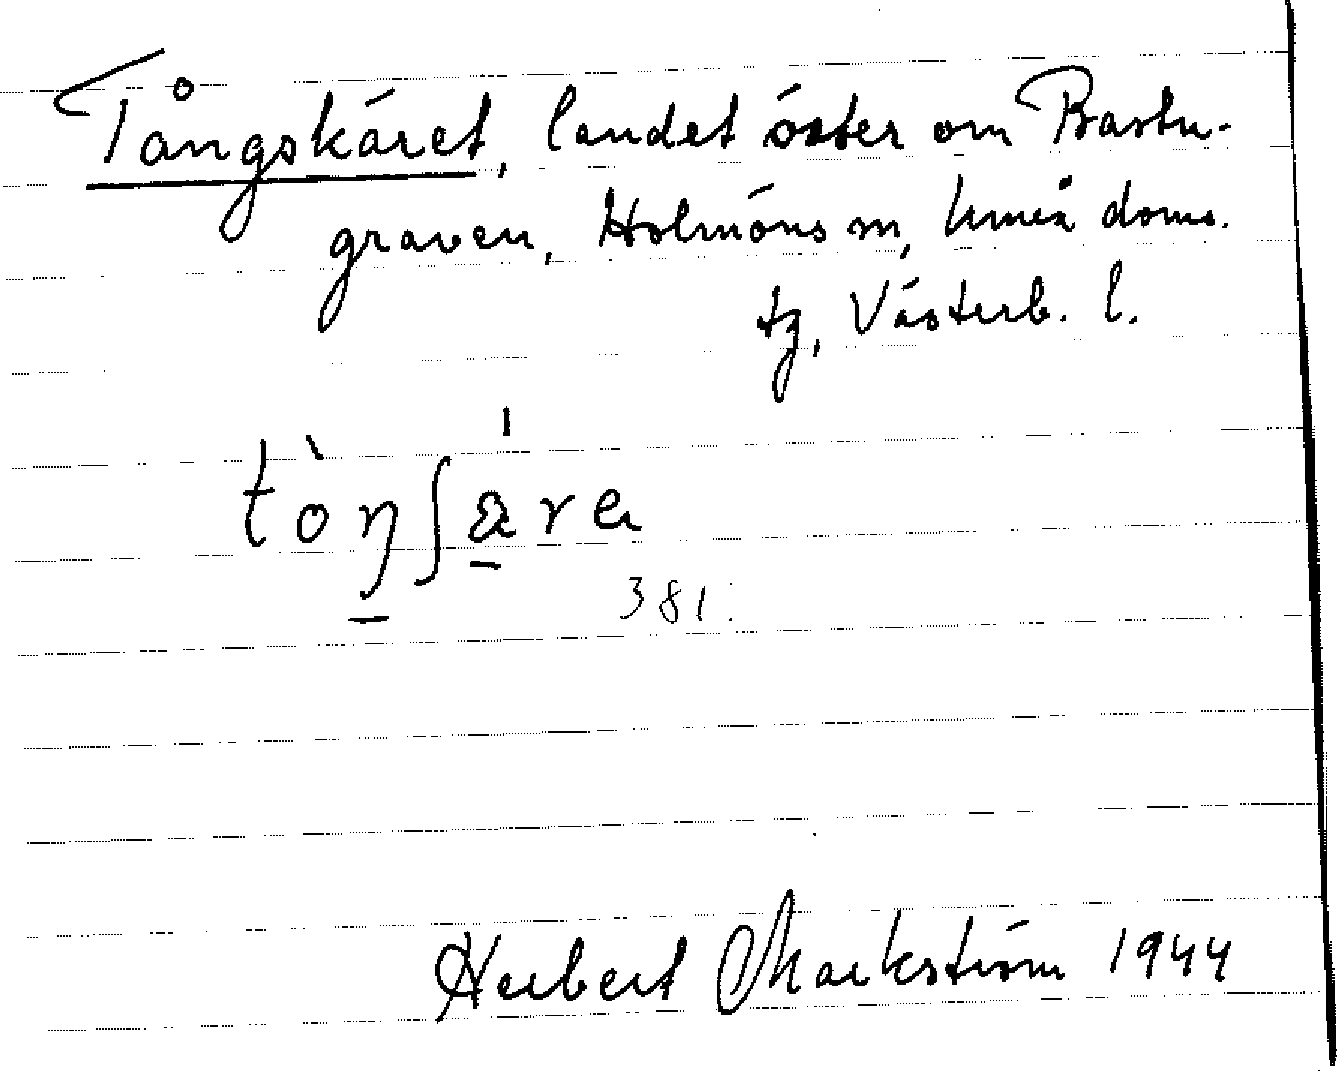 Tångskäret, landet öster om Bastu-
graven, Holmöns sn, Umeå doms.
tg, Västerb. l.
tòŋʃä̀re
381.
Herbert Markström 1944